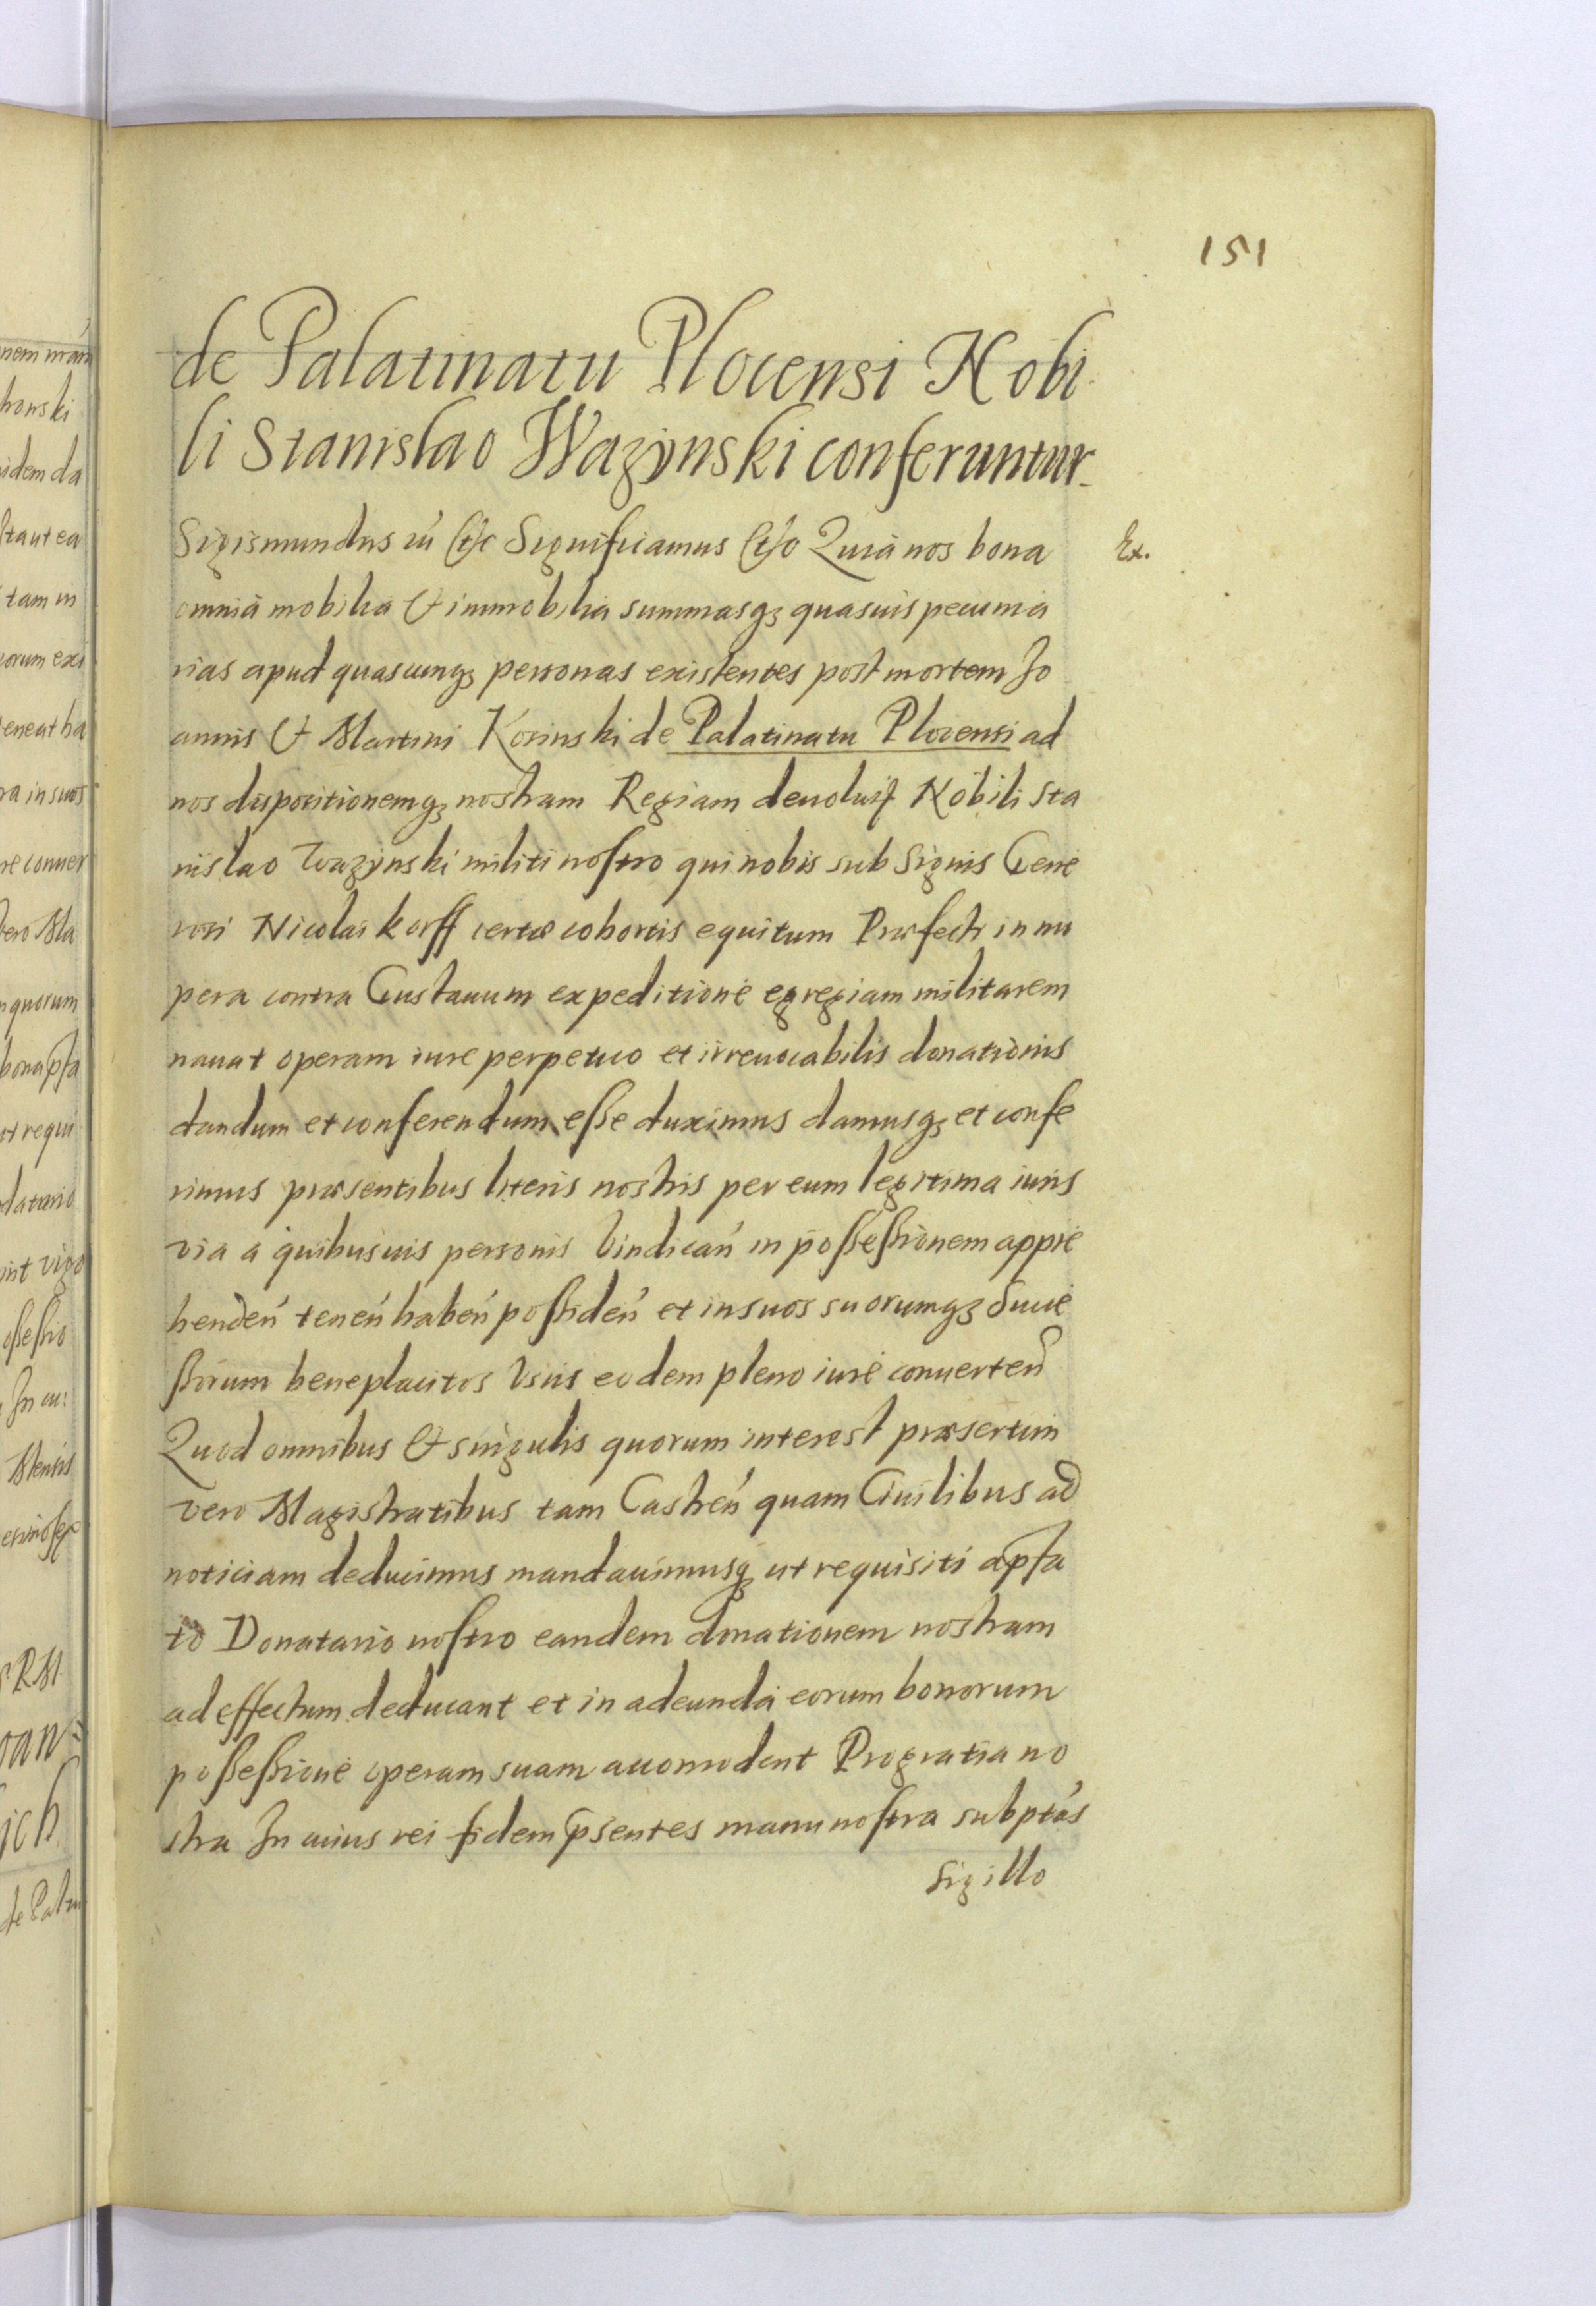 151
de Palatinatu Plocensi Nobi
li Stanislao Wazynski conferuntur.
Sigismundus iii &c Significamus &c Quia nos bona
Ex.
omnia mobilia & immobilia summasq3 quasuis pecunia
rias apud quascunq3 personas existentes post mortem Jo
annis & Martini Kosinski de Palatinatu Plocensi ad
nos dispositionemq3 nostram Regiam deuolut Nobili Sta
nislao Wazynski militi nostro qui nobis sub signis Gene
rosi Nicolai Korff certæ cohortis equitum Præfecti in nu
pera contra Gustauum expeditione egregiam militarem
nauat operam iure perpetuo et irreuocabilis donationis
dandum et conferendum esse duximus damusq3 et confe
rimus præsentibus literis nostris per eum legitima iuris
via a quibusuis personis Vindican in possessionem appre
henden tenen haben possiden et in suos suorumq3 Succe
ssorum beneplacitos Vsus eodem pleno iure conuerten
Quod omnibus & singulis quorum interest præsertim
vero Magistratibus tam Castren quam Ciuilibus ad
noticiam deducimus mandauimusq3 ut requisiti apfa
to Donatario nostro eandem donationem nostram
ad effectum deducant et in adeunda eorum bonorum
possessione operam suam accomodent Pro gratia no
stra In cuius rei fidem psentes manu nostra subptas
Sigillo
nem nram
honski
idem da
sta ut ea
tam in
orum exi
eneat ha
ra in suos
re conuer
vero Ma
quorum
bona pfa
ut requi
datario
int vigo
ssessio
In cu:
Mensis
RM
oan
ich
de Palati